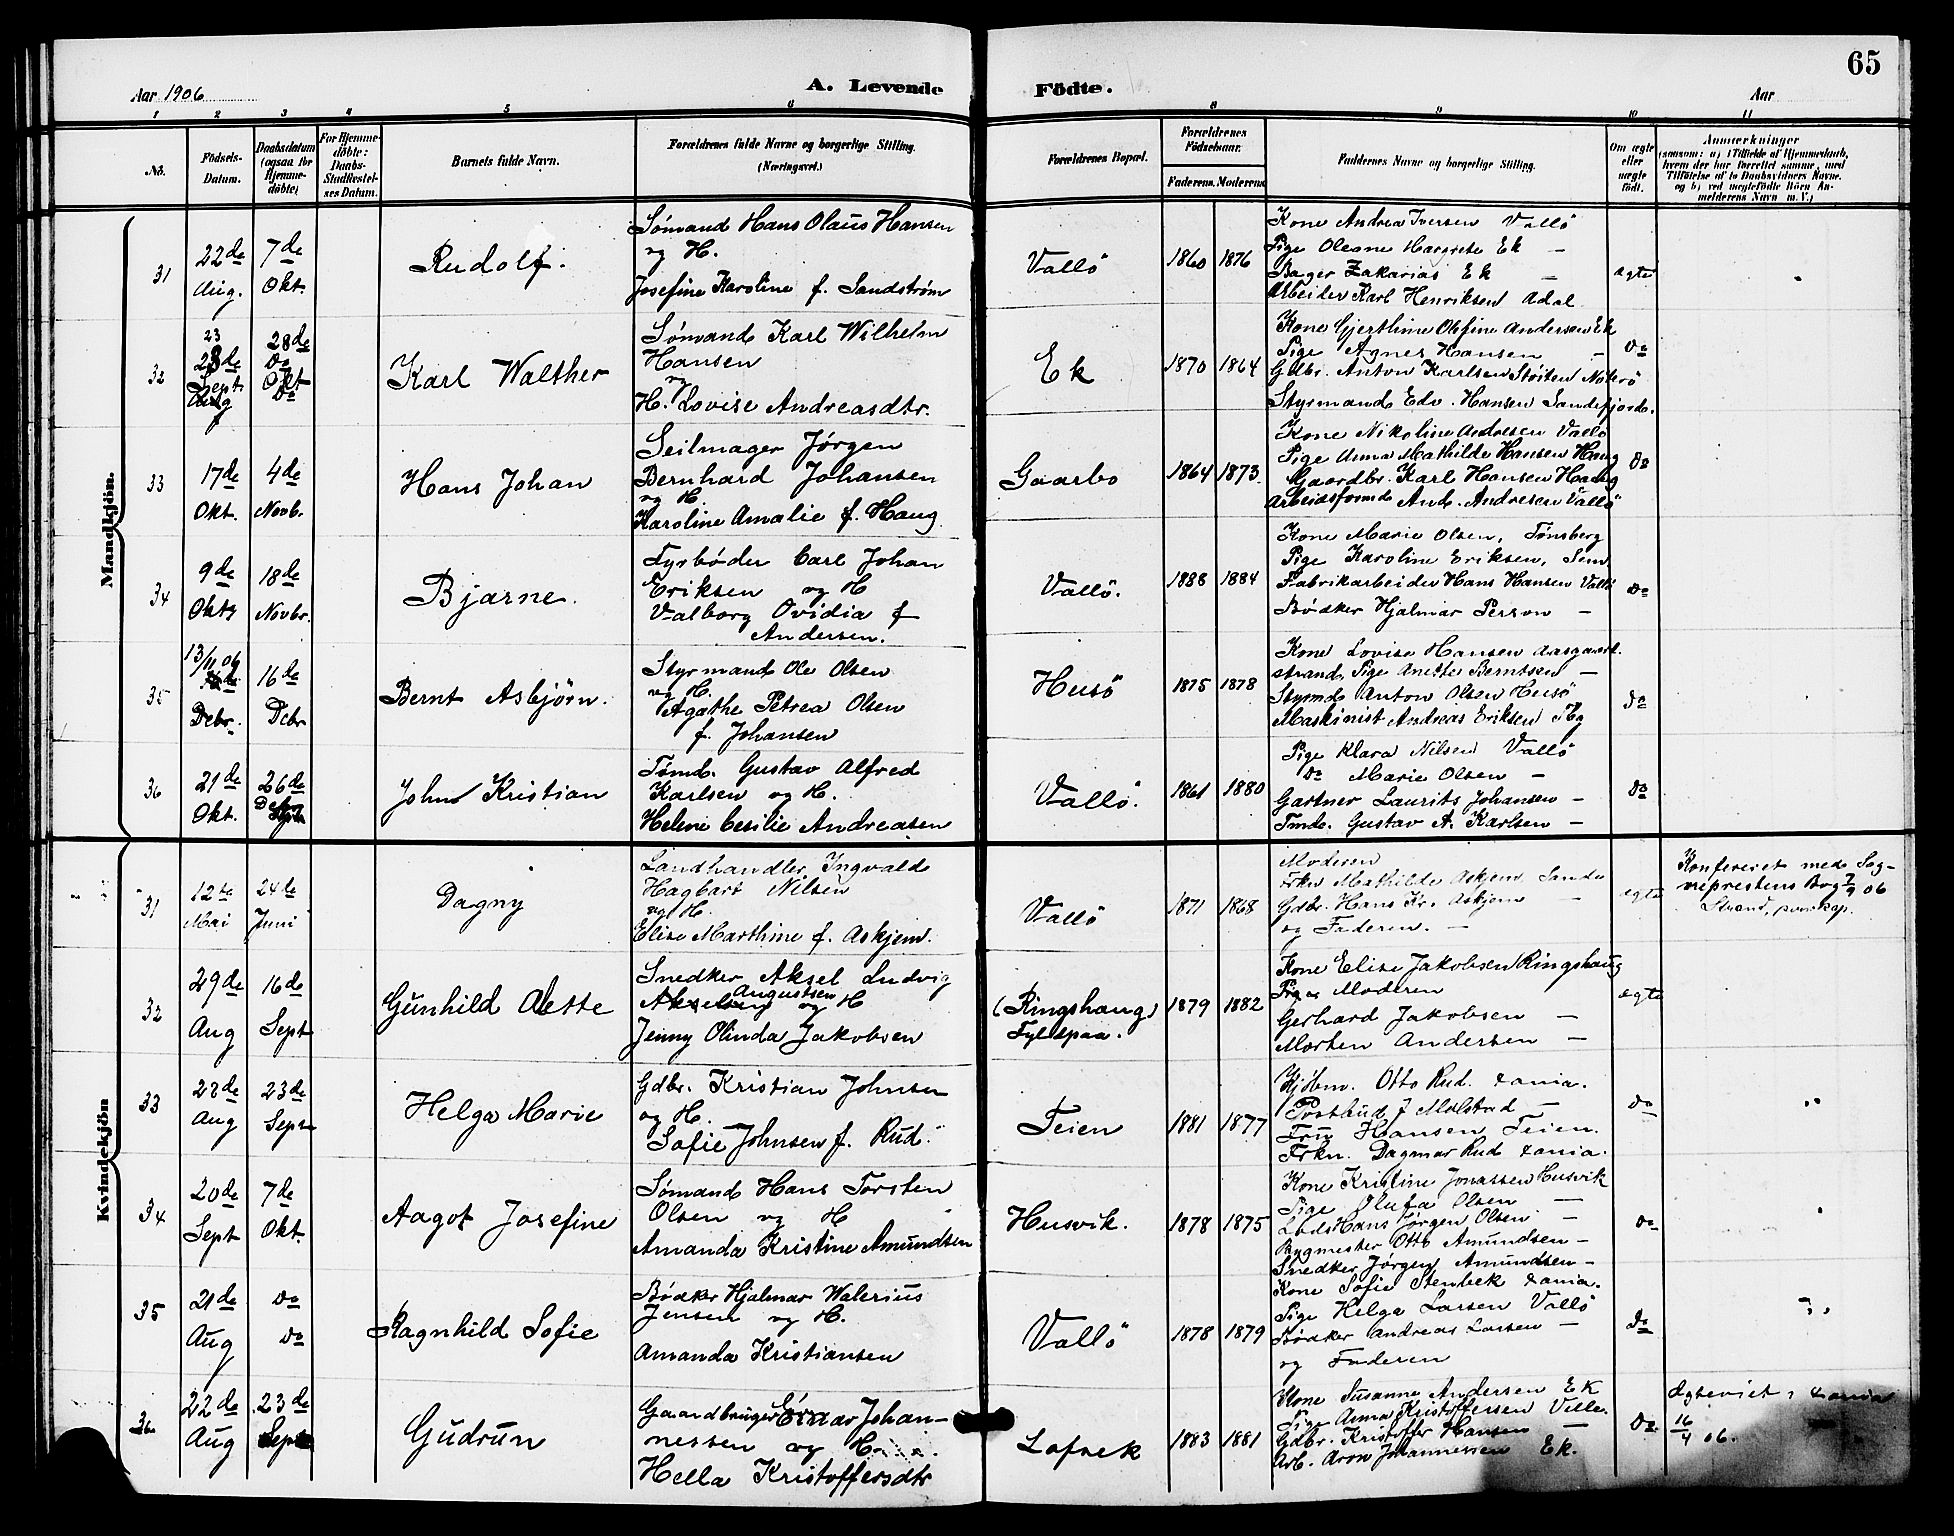 65
Aar 1906
A. Levende
Födte.
Aar
1 2 3 4 5 6 8 9 10 11
No.
Födsels-Datum.
Daabsdatum (ogsaa for Hjemme-döbte)
For Hjemme-döbte: Daabs-Stadfæstel-ses Datum.
Barnets fulde Navn.
Forældrenes fulde Navne og borgerlige Stilling. (Næringsvei.)
Forældrenes Bopæl.
Forældrenes Födselsaar.
Faderens. Moderens.
Faddernes Navne og borgerlige Stilling.
Om ægte eller uægte födt.
Anmærkninger
(saasom: a) i Tilfælde af Hjemmedaab,
hvem der har forrettet samme, med
Tilföielse af to Daabsvidners Navne.
og b) ved uægtefödte Börn An-
melderens Navn m. V.)
Mandkjön.
31
22de Aug.
7de Okt.
Rudolf.
Sømand Hans Olaus Hansen
og H.
Josefine Karoline f. Sandstrøm
Vallö
1860 1876
Kone Andrea Iversen Vallö
Pige Oleane Margrete Ek —
Bager Zakarias Ek —
Arbeider Karl Henriksen Adal
ægte
32
23
Sept.
28de
Okt
Karl Walther
Sømand Karl Wilhelm
Hansen
og
H. Lovise Andreasdtr.
Ek
1870 1864
Kone Gjerthine Olefine Andersen Ek
Pige Agnes Hansen —
Gdbr. Anton Karlsen Stoiten Nøterö
Styrmand Edv. Hansen Sandefjord.
Do
33
17de Okt.
4de Novb.
Hans Johan
Seilmager Jørgen
Bernhard Johansen
og H.
Karoline Amalie f. Haug
Gaarbo
1864 1873.
Kone Nikoline Andresen Vallö
Pige Anna Mathilde Hansen Haug
Gaardbr. Karl Hansen Haug
Arbeidsformd And. Andresen Vallö
Do
34
9de Okt
18de Novbr.
Bjarne.
Fyrbøder Carl Johan
Eriksen og H
Valborg Ovidia f
Andersen.
Vallö.
1888 1884
Kone Marie Olsen, Tønsberg
Pige Karoline Eriksen, Sem
Fabrikarbeider Hans Hansen Vallö
Bødker Hjalmar Person —
Do
35
13/11 06
Decbr.
16de Dcbr
Bernt Asbjörn.
Styrmand Ole Olsen
og H.
Agathe Petrea Olsen
f. Johansen
Husö
1875 1878
Kone Lovise Hansen Aasgaard-
strand, Pige Anette Berntsen —
Styrmd Anton Olsen Husö
Maskinist Andreas Eriksen Tbg
Do
36
21de Okt.
26de
John Kristian
Tømd. Gustav Alfred
Karlsen og H.
Helene Cecilie Andreasen
Vallö.
1861 1880
Pige Klara Nilsen Vallö
Do Marie Olsen —
Gartner Laurits Johansen —
Tmd. Gustav A. Karlsen —
Do
Kvindekjön
31
12te Mai
24de Juni
Dagny
Landhandler Ingvald
Hagbart Nilsen
og H.
Elise Marthine f. Askjem.
Vallö
1871 1868
Moderen
Frkn Mathilde Askjem Sande
Grdbr. Hans Kr. Askjem —
og Faderen. —
ægte
Konfereret med Sog-
neprestens Bog 7/9 06
Strand,
32
29de Aug
16de Sept
Gunhild Alette
Snedker Aksel Ludvig
Augustsen
og H
Jenny Olinda Jakobsen
(Ringshaug)
Fyldpaa.
1879 1882
Kone Elise Jakobsen Ringshaug
Pige Moderen
Gerhard Jakobsen —
Morten Andersen —
ægte
33
28de Aug
23de Sept
Helga Marie
Gdbr. Kristian Johnsen
og H.
Sofie Johnsen f. Rud.
Teien
1881 1877
Kjöbm. Otto Rud. Xania.
Postbud J Molstad —
Fru Hansen Teien.
Frkn. Dagmar Rud Xania.
Do
34
20de Sept
7de Okt.
Aagot Josefine
Sømand Hans Torsten
Olsen og H
Amanda Kristine Amundsen
Husvik.
1878 1875
Kone Kristine Jonassen Husvik
Pige Olufa Olsen —
Lods Hans Jørgen Olsen —
Bygmester Otto Amundsen —
Snedker Jørgen Amundsen —
Do
35
21de Aug
Do
Do
Ragnhild Sofie
Bødker Hjalmar Walerius
Jensen og H.
Amanda Kristiansen
Vallö
1878 1879
Kone Sofie Stenbek Xania.
Pige Helga Larsen Vallö
Bødker Andreas Larsen —
og Faderen
Do
36
22de Aug
23de Sept
Gudrun
Gaardbruger Einar Johan-
nessen og H.
Hella Kristoffersdtr
Lofsek
1883 1881
Kone Susanne Andersen Ek
Pige Anna Kristoffersen Ville.
Gdbr. Kristoffer Hansen —
Arb. Aron Johannessen Ek.
Do
Ægteviet i Xania
16/4 06.